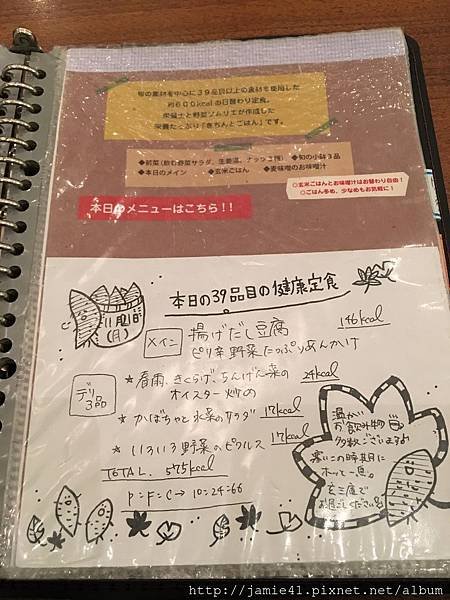 旬の素材を中心に39品目以上の食材を使用した
約600kcalの日替わり定食。
栄養士と野菜ソムリエが作成した
栄養たっぷり「きちんとごはん」です。
◆前菜(飲む野菜サラダ、生姜湯、ナッツ3種) ◆旬の小鉢3品
◆本日のメイン ◆玄米ごはん ◆麦味噌のお味噌汁
○玄米ごはんとお味噌汁はお替わり自由！
○ごはん多め、少なめもお気軽に！
本日のメニューはこちら！！
本日の39品目の健康定食
11月
(月)
メイン
揚げだし豆腐 146kcal
ピリ辛野菜たっぷりあんかけ
デリ3品
★春雨、きくらげ、ちんげん菜の 24kcal
オイスター炒め
★かぼちゃと水菜のサラダ 17kcal
★いろいろ野菜のピクルス 17kcal
TOTAL. 575kcal
P:F:C→10:24:66
温かい
お飲み物
多数ございます♪
寒いこの時期に
ホッと一息。
玄三庵で
お過ごしください
http://jamie41.pixnet.net/album